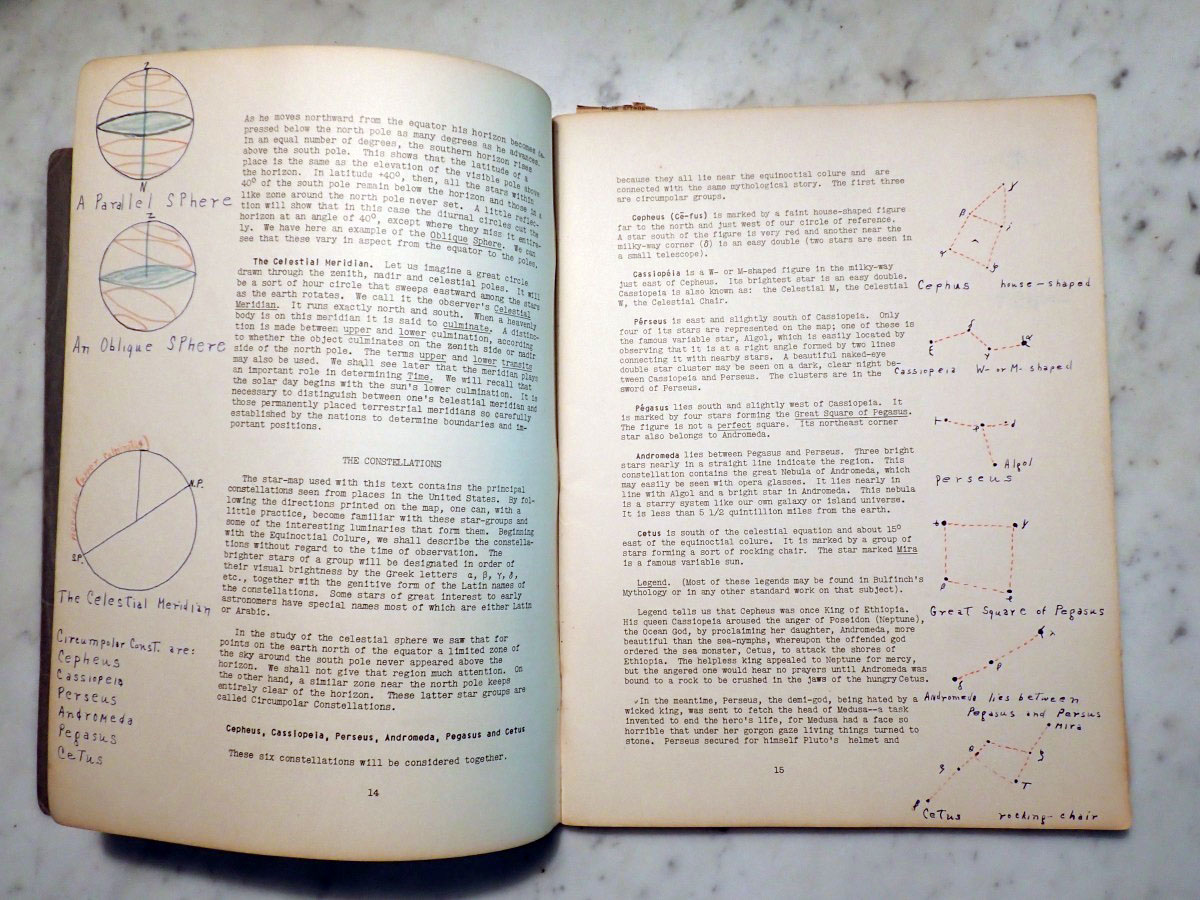 Z
N
A Parallel Sphere
Z
An Oblique Sphere
N.P.
S.P.
The Celestial Meridian
Circumpolar Const. are:
Cepheus
Cassiopeia
Perseus
Andromeda
Pegasus
Cetus
As he moves northward from the equator his horizon becomes
pressed below the north pole as many degrees as he advances.
In an equal number of degrees, the southern horizon rises
above the south pole. This shows that the latitude of a
place is the same as the elevation of the visible pole above
the horizon. In latitude +40°, then, all the stars within
40° of the south pole remain below the horizon and those in a
like zone around the north pole never set. A little reflec-
tion will show that in this case the diurnal circles cut the
horizon at an angle of 40°, except where they miss it entire-
ly. We have here an example of the Oblique Sphere. We can
see that these vary in aspect from the equator to the poles.
The Celestial Meridian. Let us imagine a great circle
drawn through the zenith, nadir and celestial poles. It will
be a sort of hour circle that sweeps eastward among the stars
as the earth rotates. We call it the observer's Celestial
Meridian. It runs exactly north and south. When a heavenly
body is on this meridian it is said to culminate. A distinc-
tion is made between upper and lower culmination, according
to whether the object culminates on the zenith side or nadir
side of the north pole. The terms upper and lower transits
may also be used. We shall see later that the meridian plays
an important role in determining Time. We will recall that
the solar day begins with the sun's lower culmination. It is
necessary to distinguish between one's celestial meridian and
those permanently placed terrestrial meridians so carefully
established by the nations to determine boundaries and im-
portant positions.
THE CONSTELLATIONS
The star-map used with this text contains the principal
constellations seen from places in the United States. By fol-
lowing the directions printed on the map, one can, with a
little practice, become familiar with these star-groups and
some of the interesting luminaries that form them. Beginning
with the Equinoctial Colure, we shall describe the constella-
tions without regard to the time of observation. The
brighter stars of a group will be designated in order of
their visual brightness by the Greek letters α, β, γ, δ,
etc., together with the genitive form of the Latin names of
the constellations. Some stars of great interest to early
astronomers have special names most of which are either Latin
or Arabic.
In the study of the celestial sphere we saw that for
points on the earth north of the equator a limited zone of
the sky around the south pole never appeared above the
horizon. We shall not give that region much attention. On
the other hand, a similar zone near the north pole keeps
entirely clear of the horizon. These latter star groups are
called Circumpolar Constellations.
Cepheus, Cassiopeia, Perseus, Andromeda, Pegasus and Cetus
These six constellations will be considered together.
14
because they all lie near the equinoctial colure and are
connected with the same mythological story. The first three
are circumpolar groups.
Cepheus (Cē-fus) is marked by a faint house-shaped figure
far to the north and just west of our circle of reference.
A star south of the figure is very red and another near the
milky-way corner (δ) is an easy double (two stars are seen in
a small telescope).
Cassiopéia is a W- or M-shaped figure in the milky-way
just east of Cepheus. Its brightest star is an easy double.
Cassiopeia is also known as: the Celestial M, the Celestial
W, the Celestial Chair.
Pérseus is east and slightly south of Cassiopeia. Only
four of its stars are represented on the map; one of these is
the famous variable star, Algol, which is easily located by
observing that it is at a right angle formed by two lines
connecting it with nearby stars. A beautiful naked-eye
double star cluster may be seen on a dark, clear night be-
tween Cassiopeia and Perseus. The clusters are in the
sword of Perseus.
Pégasus lies south and slightly west of Cassiopeia. It
is marked by four stars forming the Great Square of Pegasus.
The figure is not a perfect square. Its northeast corner
star also belongs to Andromeda.
Andromeda lies between Pegasus and Perseus. Three bright
stars nearly in a straight line indicate the region. This
constellation contains the great Nebula of Andromeda, which
may easily be seen with opera glasses. It lies nearly in
line with Algol and a bright star in Andromeda. This nebula
is a starry system like our own galaxy or island universe.
It is less than 5 1/2 quintillion miles from the earth.
Cetus is south of the celestial equation and about 15°
east of the equinoctial colure. It is marked by a group of
stars forming a sort of rocking chair. The star marked Mira
is a famous variable sun.
Legend. (Most of these legends may be found in Bulfinch's
Mythology or in any other standard work on that subject).
Legend tells us that Cepheus was once King of Ethiopia.
His queen Cassiopeia aroused the anger of Poseidon (Neptune),
the Ocean God, by proclaiming her daughter, Andromeda, more
beautiful than the sea-nymphs, whereupon the offended god
ordered the sea monster, Cetus, to attack the shores of
Ethiopia. The helpless king appealed to Neptune for mercy,
but the angered one would hear no prayers until Andromeda was
bound to a rock to be crushed in the jaws of the hungry Cetus.
In the meantime, Perseus, the demi-god, being hated by a
wicked king, was sent to fetch the head of Medusa--a task
invented to end the hero's life, for Medusa had a face so
horrible that under her gorgon gaze living things turned to
stone. Perseus secured for himself Pluto's helmet and
15
Cephus house-shaped
Cassiopeia W- or M- shaped
Algol
Perseus
Great Square of Pegasus
Andromeda lies between
Pegasus and Persus
Mira
Cetus rocking-chair